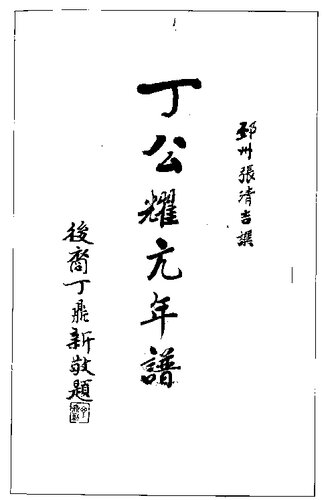 邳州張清吉撰
丁公耀亢年譜
後裔丁鼎新敬題